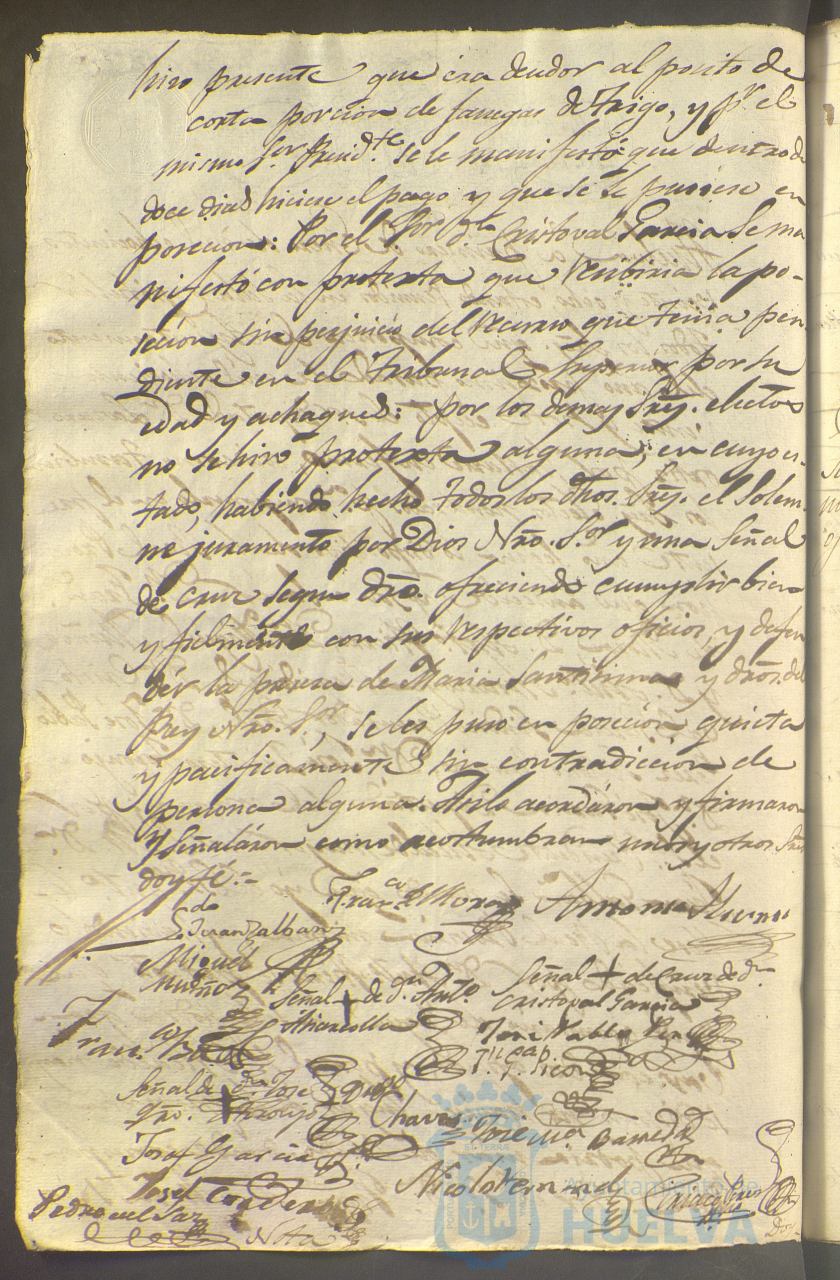 hizo presente que era deudor al posito de
corta porcion de fanegas de trigo, y pr. el
mismo Sor. Presid.te se le manifestó que dentro de
doce dias hiciese el pago y que se le pusiese en
posecion: Por el Sor. dn. Cristoval Garcia se ma
nifestó con protexta que recibiria la po-
seción sin perjuicio del recurso que tenia pen
diente en el Tribunal Superior por su
edad y achaques: por los demas Sres. electos
no se hizo protexta alguna; en cuyo es
tado, habiendo hecho todos los dhos. Sres. el Solem
ne juramento por Dios Nro. Sor. y una Señal
de cruz segun dro. ofreciendo cumplir bien
y fielmente con sus respectivos oficios, y defen
der la pureza de Maria Santisima y dros. del
Rey Nro. Sor., se les puso en poseción quieta
y pacificamente sin contradiccion de
persona alguna. Asi lo acordáron y firmaron
y Señaláron como acostumbran unos y otros Sres.
doy fé:=
Franco. Mora Antonio
Miguel
Muñoz
Señal + de dn. Anto. Señal + de Cruz de dn.
Cristoval Garcia
Franco. José Pablo
Señal de dn. José
Chaves José Ma.
Josef Garcia
Josef Cordero Nicolas
Pedro del
Nota
Ayuntamiento de
HUELVA